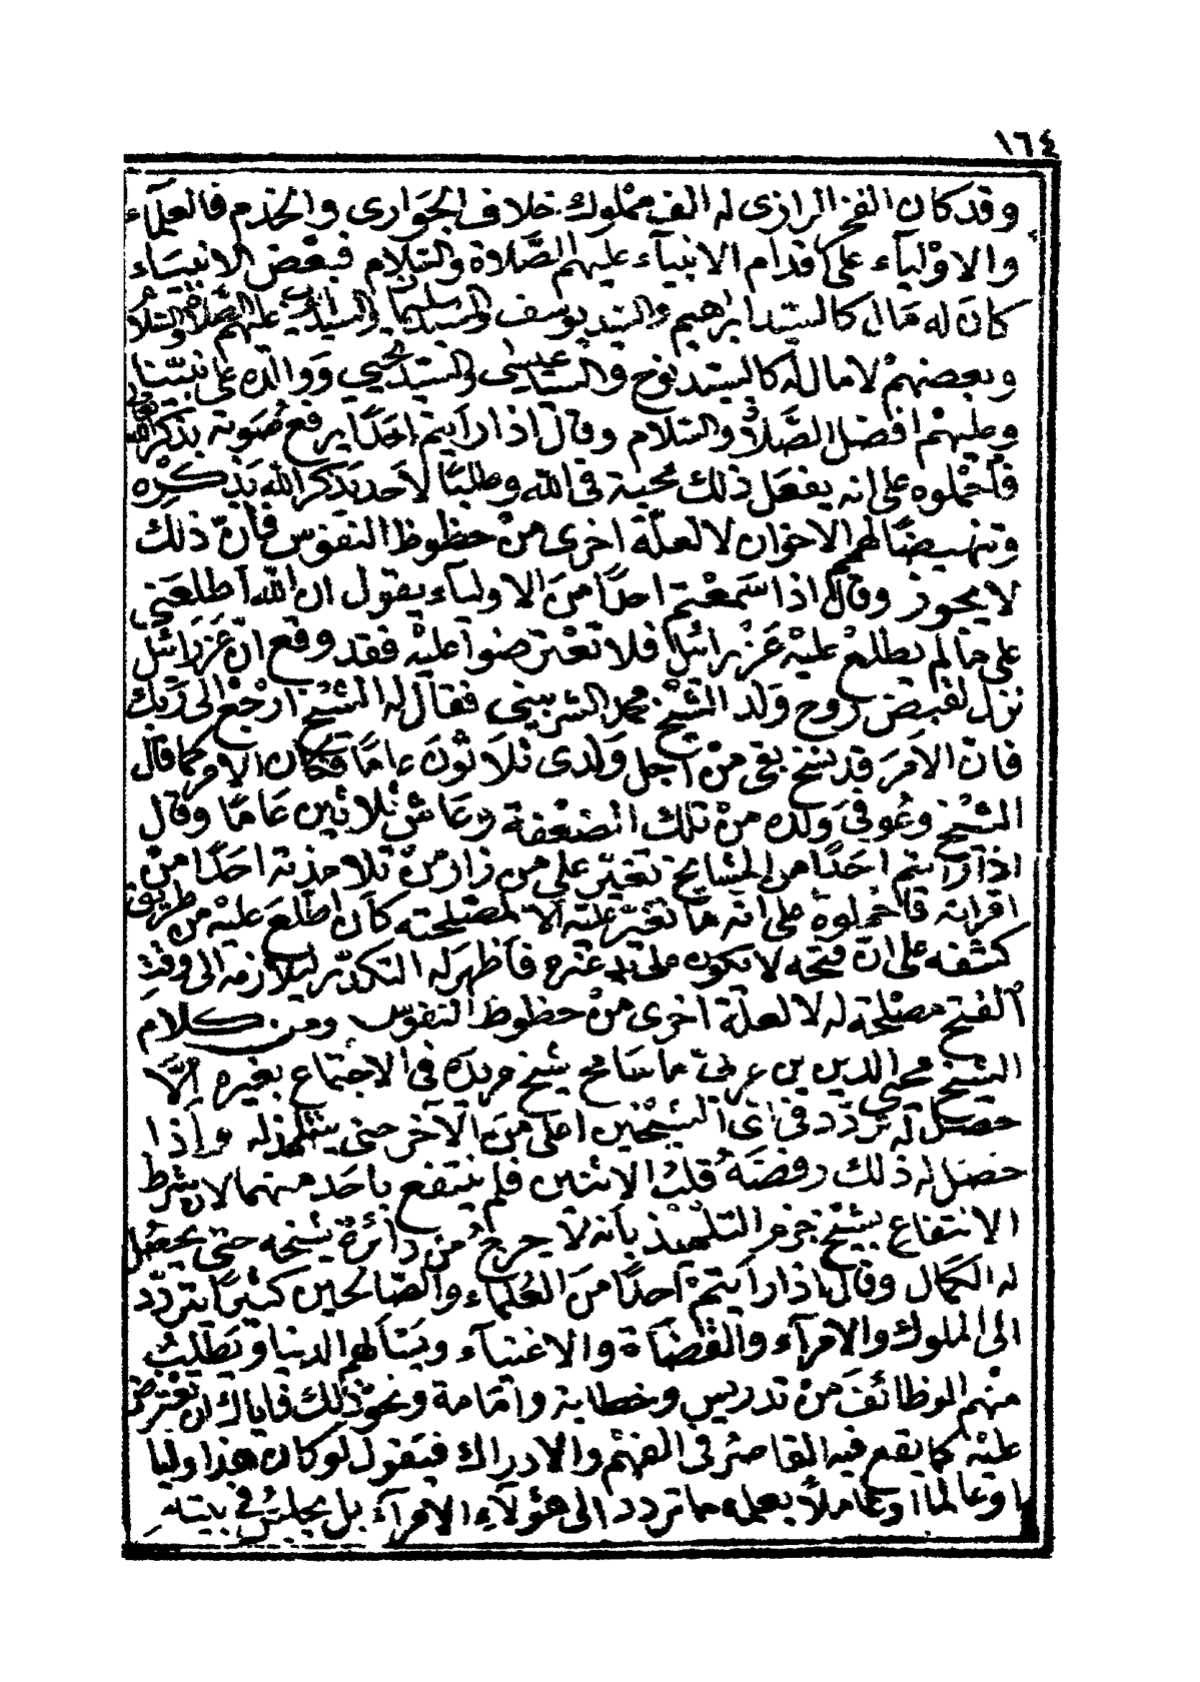 ١٦٤
وقد كان الفخر الرازى له الف مملوك خلاف الجوارى والخدم فالعلمآء
والاوْليآء على اقدام الانبيآء عليهم الصَّلاة والسّلام فبعْض الانبيَاء
كانَ له مَال كالسّيّد ابرٰهيم والسّيد يوسف والسّيد سليمان والسّيد ايّوب عليهم الصّلاة والسّلام
وبعضهمْ لامال له كالسيّد نوح والسّيد عيسٰى والسّيّد يحيى ووالده على نبيّنا
وعليهمْ افضل الصَّلاة والسّلام وقال اذا رايتم احَدًا يرفع صَوته بذكر الله تعالى
فاحْملوه على انه يفعَل ذلك محبة فى الله وطلبًا لاَحد يَذكر الله بَذِكْرِه
وتنهيضًا لهم الاخوان لا لعلّة اخرى منْ حظوظ النفوس فانّ ذلك
لا يجوز وقال اذا سَمعْتم احدًا منَ الاولياء يقول ان الله اطلعَنى
على مَا لم يطلعْ عليْه عَزْرائيل فلا تعْترضوا عليْه فقد وقع انّ عَزرَائيل
نزل لقبض رُوح وَلد الشّيْخ محمد الشربينى فقال له الشيْخ ارْجعْ الى رَبّك
فانّ الاَمرَ قد نسخ بقى منْ اجل وَلدى ثلاثونَ عامًا فكان الامر كما قال
الشيْخ وعُوفىَ وَلده منْ تلك الضعْفة وعَاش ثلاثين عَامًا وقال
اذا رَايتم احَدًا من المشايخ تغيّر على من زار منْ تلامذته احَدًا منْ
اقرانه فاحْملوهُ على انّه مَا تغيّر عليْه الا لمصْلحته كأن اطّلعَ عليْه من طريق
كشفه على انّ فتحَه لا يكون على يد غيْرِه فاظهرَ له التكدّر ليلازمه الى وقت
الفتح مصْلحة له لا لعلّة اخرى منْ حظوظ النفوس ومن كلام
الشيْخ محيى الدين بن عربى مَا سَامحَ شيْخ مريدَه فى الاجتماع بغيره الاَّ
حصَل له تردّد فى اىّ الشيْخين اعلى منَ الآخر حتى يتلمذ له واذا
حصَل له ذلك رفضَهُ قلبُ الاثنين فلم ينتفع باحَد منهما لانّ شرط
الانتفاع بشيْخ جَزم التلميذ بانه لا يخرجُ من دائرة شيْخه حتى يحصُل
له الكمال وقال اذا رايتمْ احدًا منَ العُلماء والصّالحين كثيرًا يتردّد
الى الملوك والامرآء والقُضَاة والاغنيآء ويَسْألهم الدنيا ويَطلبُ
منْهم الوظائفَ منْ تدريس وخطابة وامَامة ونحوْ ذلك فاياك ان تعْترض
عليْه كما يقع فيه القاصرُ فى الفهْم والادراك فيَقول لو كان هذا وليا
اوعَالمًا اوعَاملاً بعلمه ماتردد الى هؤلآءِ الامرآءِ بل يجلسُ فى بيته